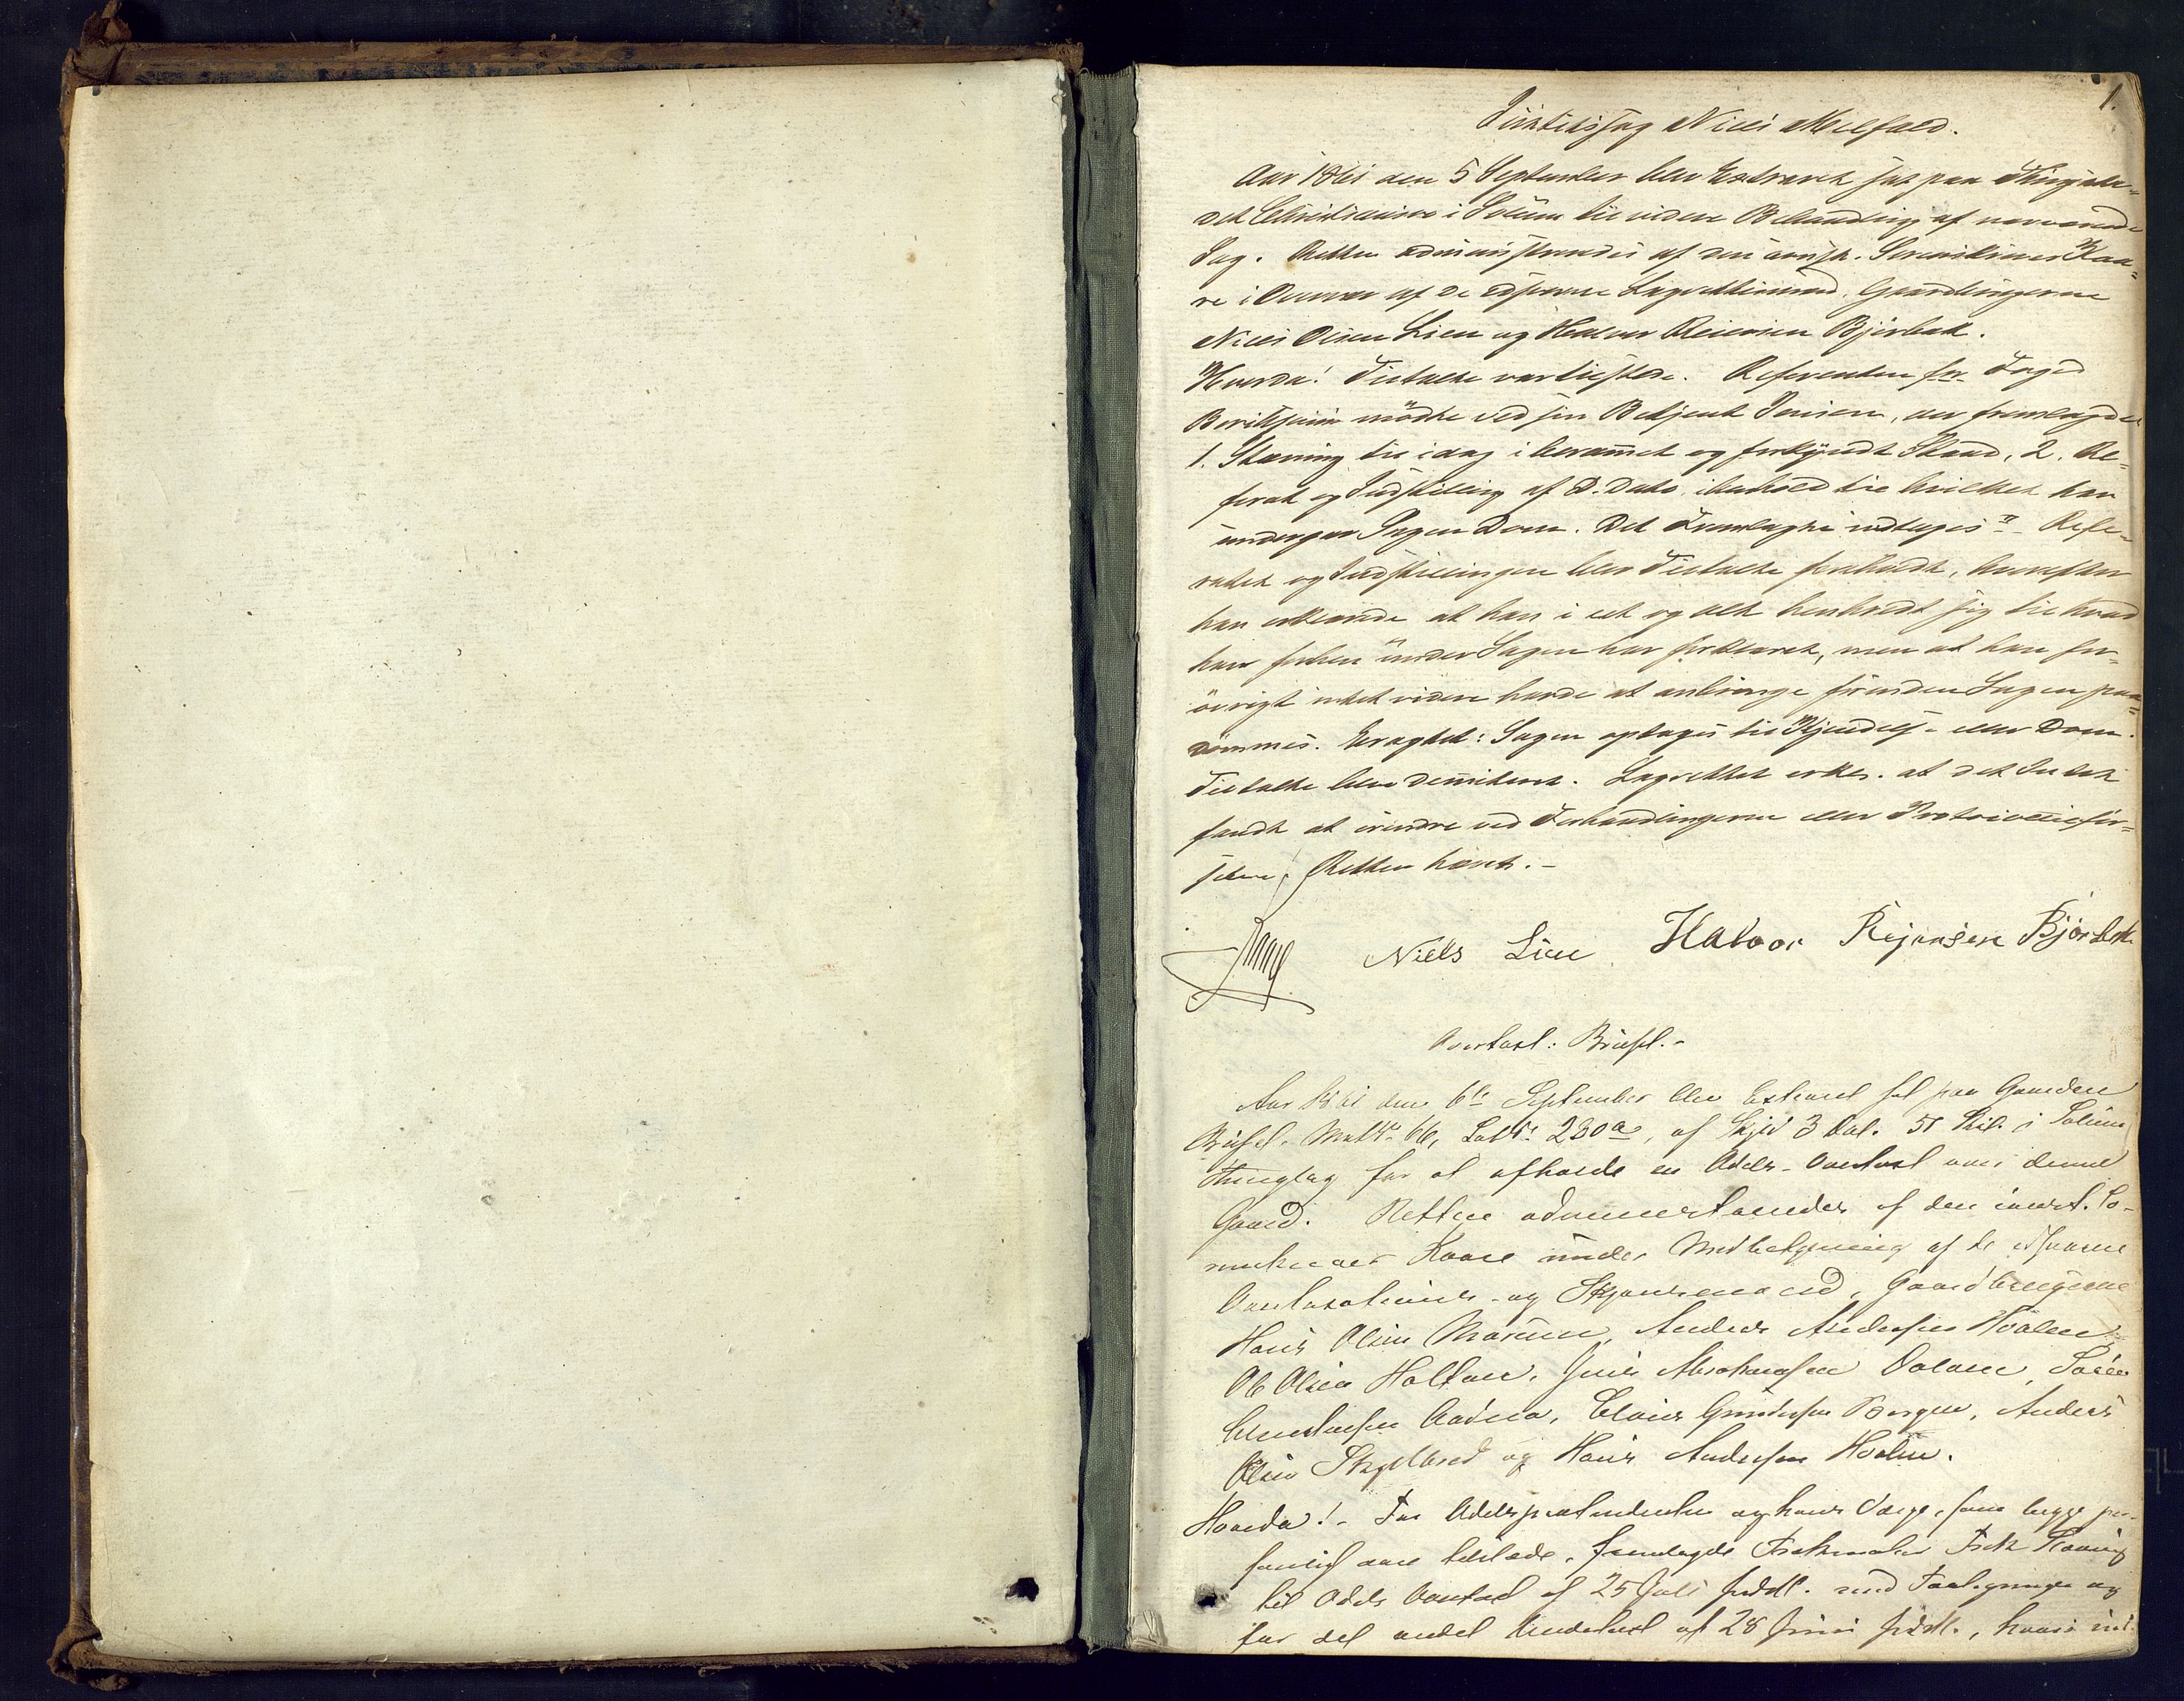 1.
Justitssag Niels Melfald.
Aar 1861 den 5 September blev Extraret sat paa Thingste-
det i Solum til videre Behandling af nærværende
Sag. Retten administreredes af den const. Sorenskriver Kaa-
re i Overvær af de edsvorne Lagrettemænd, Gaardbrugerne
Niels Olsen Lien og Halvor Reiersen Bjørbæk.
Hvorda! Tiltalte var tilstede. Referenten for Foged
mødte ved sin Betjent Jensen, der fremlagde
1. Stævning til idag i berammet og forkyndt Stand, 2. Re-
ferat og Indstilling af D. Dato, i Henhold til hvilket han
undergav Sagen Dom. Det Fremlagte indtages ". Refe-
ratet og Indstillingen blev Tiltalte foreholdt, hvorefter
han erklærede at han i eet og alt henholdt sig til hvad
han forhen under Sagen har forklaret, men at han for-
øvrigt intet videre havde at anbringe førinden Sagen paa-
dømmes. Eragtet: Sagen optages til Kjendelse eller Dom.
Tiltalte blev demitteret. Lagrettet erkl. at det Intet
fandt at erindre ved Forhandlingerne eller Protocolleisfør-
selen, Retten hævet. -
Niels Lien Halvor Rejersen Bjørbæk
Overtaxt: Brüsel. -
Aar 1861 den 6te September blev Extraret sat paa Gaarden
Brüsel. Matr.№ 66, Løb.№ 230a, af Skyld 3 Dal. Skil. i Solum
Thinglag for at afholde en Odels-Overtaxt over denne
Gaard. Retten administreredes af den const. So-
renskriver Kaare under Medbetjening af de edsvorne
Overtaxations- og Skjønsmænd, Gaardbrugerne
Hans Olsen, Anders Andersen Hoalen
Ole Olsen Holtan, Jens Abrahamsen, Søren
Christensen, Claus Gundersen Bergan, Anders
Olsen Skyelbred og Hans Andersen Hoalen.
Hvorda! - For Odelsprætendenten og hans Værge, som begge per-
sonlig vare tilstede, fremlagde Stævning
til Odels Overtaxt af 25 Juli sidstl. med Paategninger og
for det andet Undertaxt af 28 Juni sidstl., hvori ind-